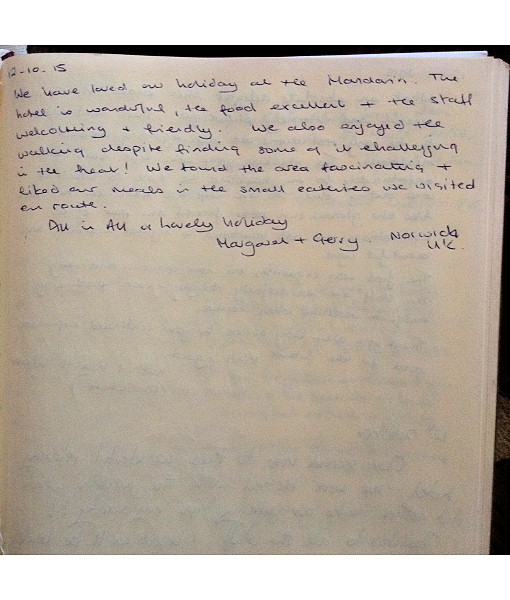 12-10.15
We have loved our holiday at the Mandarin. The
hotel is wonderful, the food excellent + the staff
welcoming + friendly. We also enjoyed the
walking despite finding some of it challenging
in the heat! We found the area fascinating +
liked our meals in the small eateries we visited
en route.
All in All a lovely holiday
Margaret + Gerry. Norwich
UK.